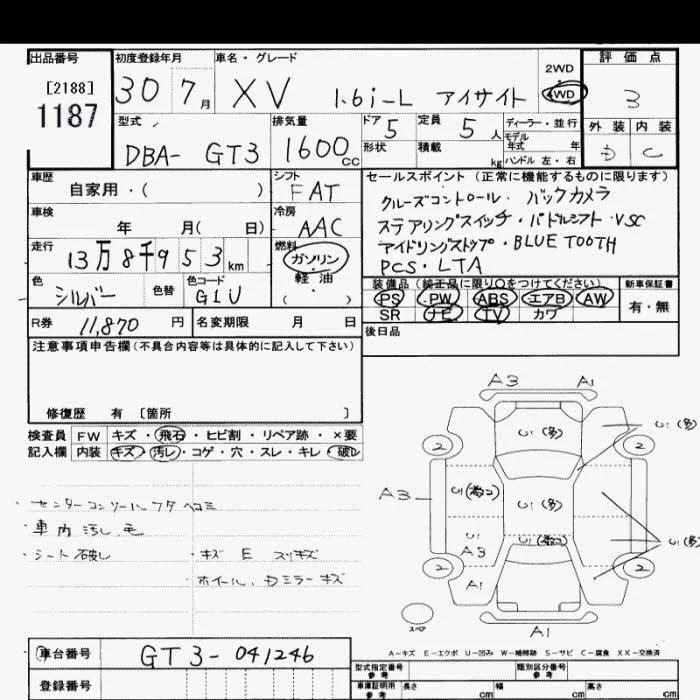 出品番号
[2188]
1187
初度登録年月
30 7月
車名・グレード
XV 1.6i-L アイサイト
2WD
4WD
評価点
3
型式
DBA- GT3
排気量
1600cc
ドア 5
定員 5人
形状
積載 kg
ディーラー・並行
モデル年式 年
ハンドル 左・右
外装 内装
D C
車歴
自家用・( )
シフト
FAT
車検
年 月( 日)
冷房
AAC
走行
13万8千953km
燃料
ガソリン
・
軽油
・
( )
色
シルバー
色替
色コード
G1U
R券 11,870円
名変期限 月 日
セールスポイント (正常に機能するものに限ります)
クルーズコントロール・バックカメラ
ステアリングスイッチ・パドルシフト・VSC
アイドリングストップ・BLUE TOOTH
PCS・LTA
装備品(純正品に限り○をつけてください)
PS PW ABS エアB AW
SR ナビ TV カワ
新車保証書
有・無
後日品
注意事項申告欄(不具合内容等は具体的に記入して下さい)
修復歴 有 [箇所 ]
検査員 FW キズ・飛石・ヒビ割・リペア跡・×要
記入欄 内装 キズ・汚レ・コゲ・穴・スレ・キレ・破レ
・センターコンソールフタ ヘコミ
・車内汚し、毛
・シート破し
・キズ E スリキズ
・ホイール、Dミラーキズ
A3 A1
U1(多)
U1(多)
2 2
A3
U1(多)
U1
A3
U1(多)
2 2
A1
スペア
A1
A-キズ E-エクボ U-凹み W-補修跡 S-サビ C-腐食 XX-交換済
車台番号 GT3-041246
登録番号
型式指定番号 参考
類別区分番号 参考
車庫証明用 参考
長さ cm
幅 cm
高さ cm